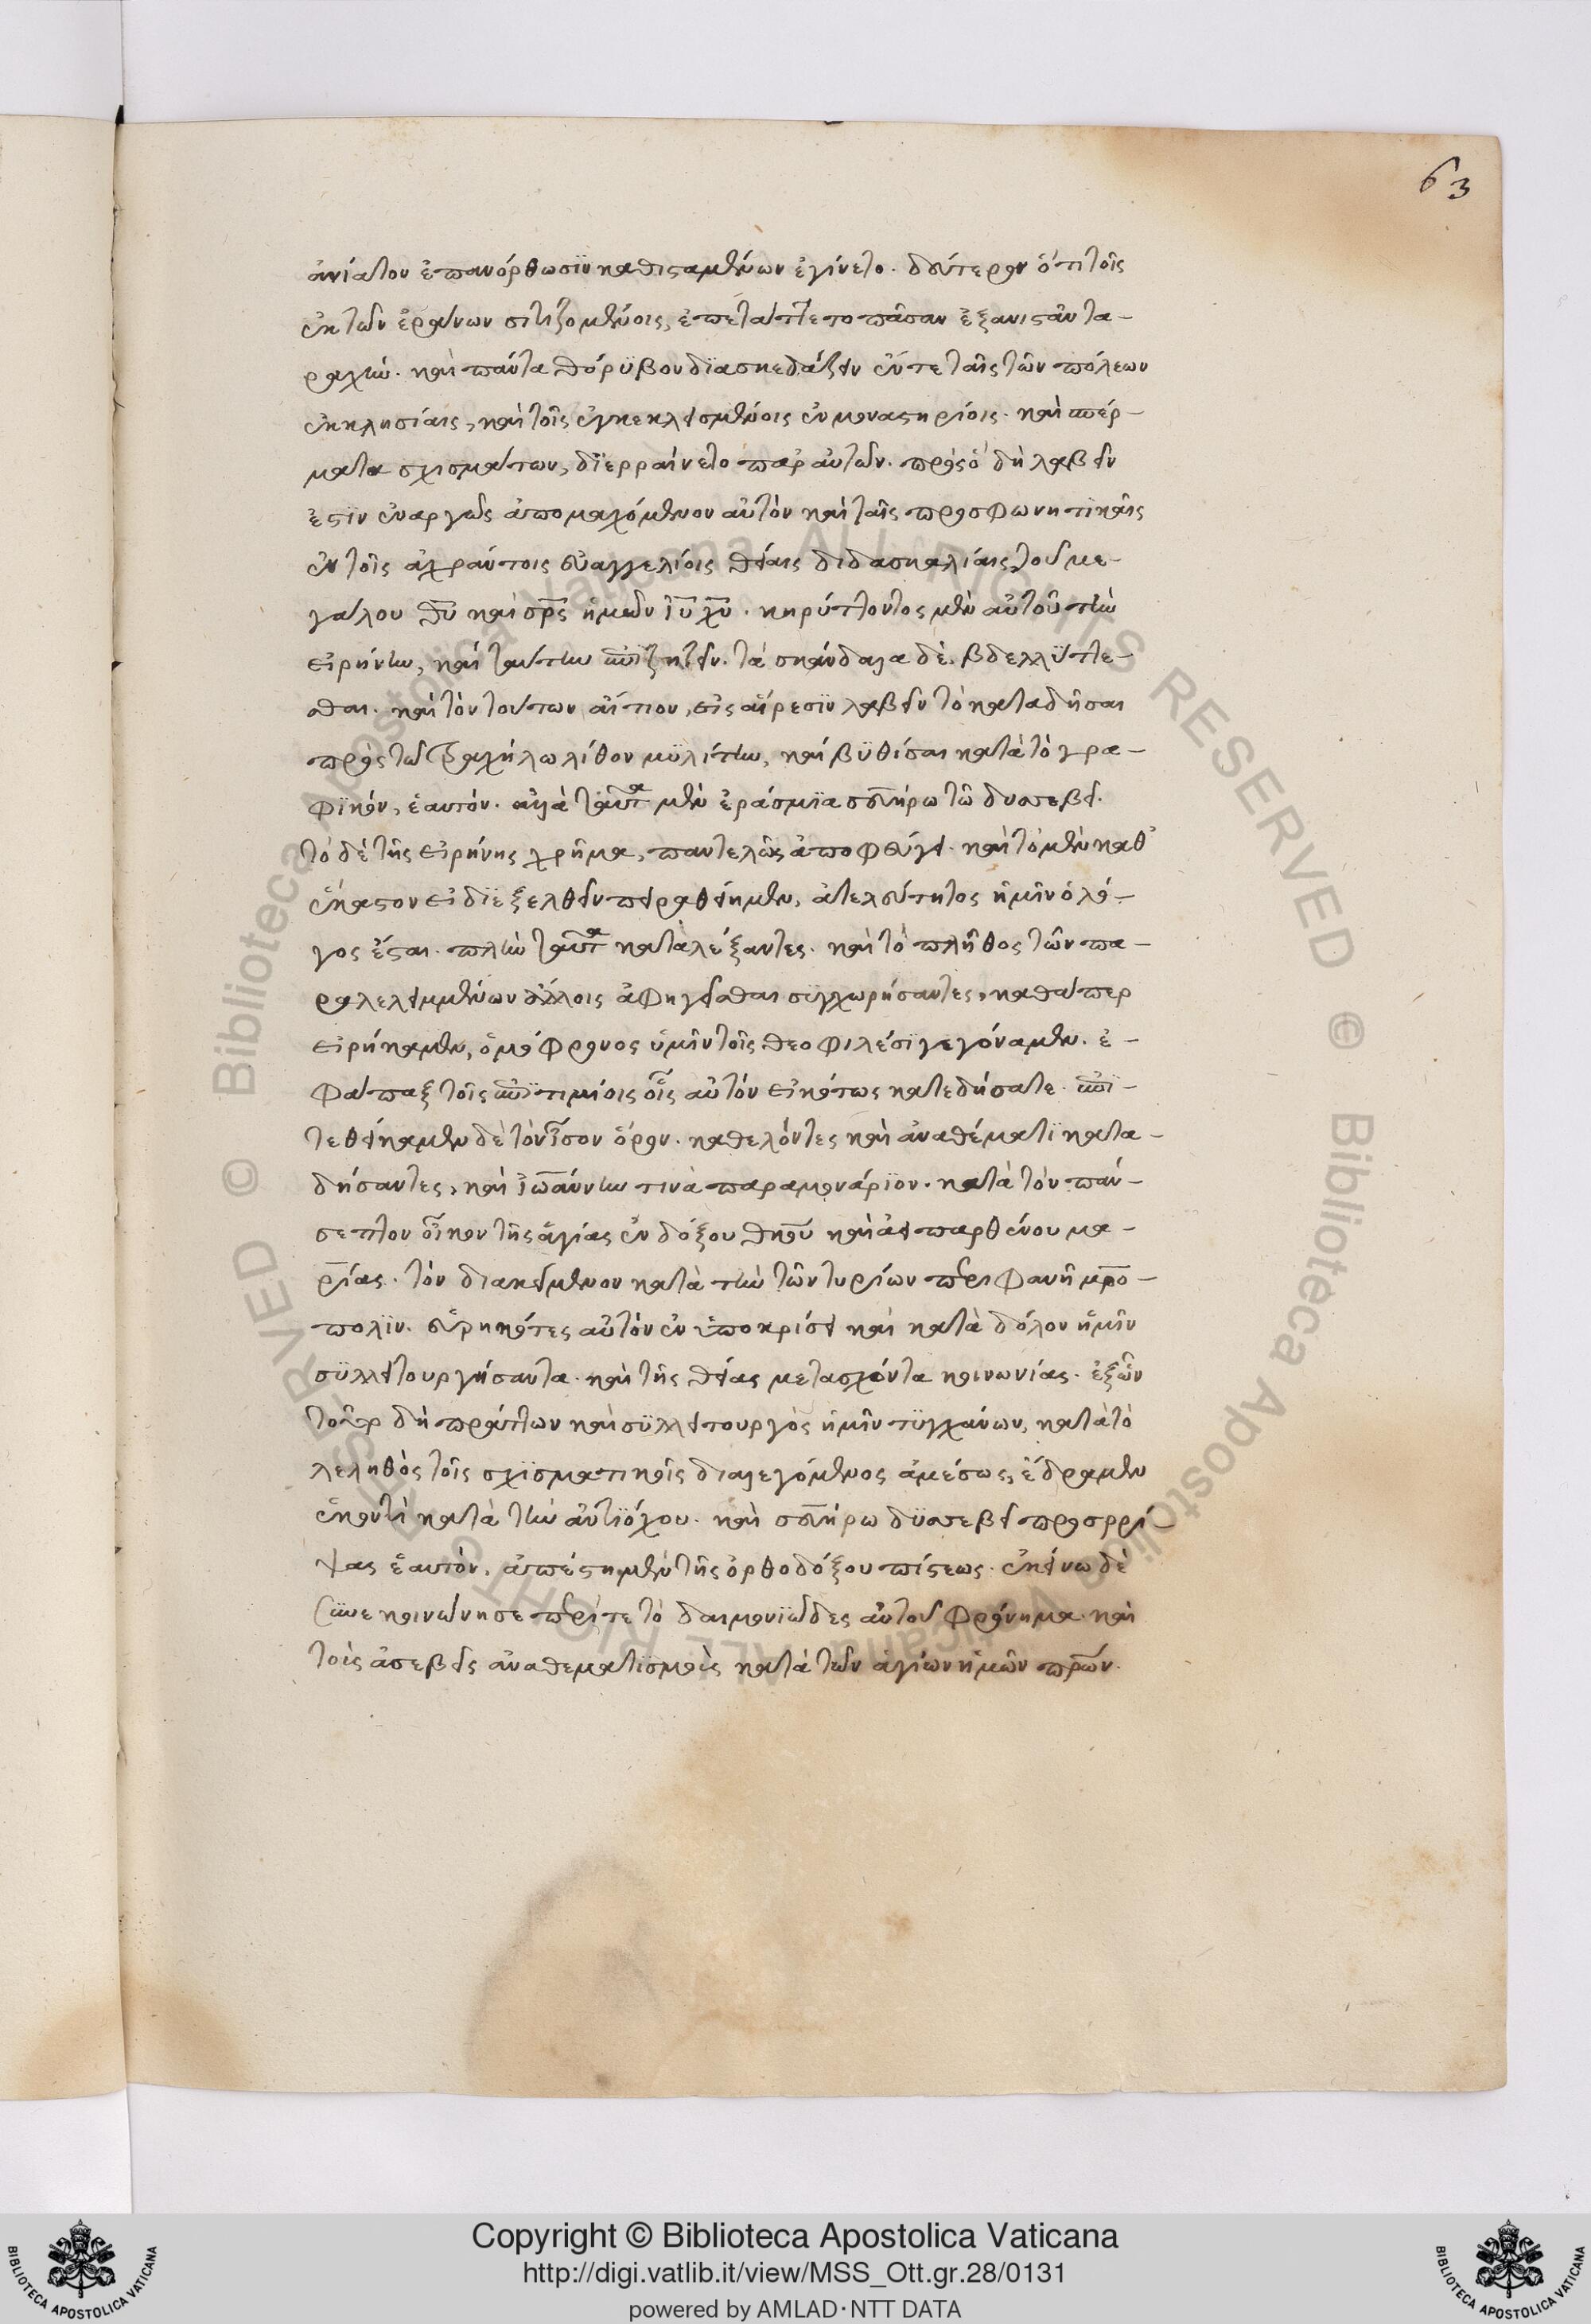 63
ἀνίατον ἐπανόρθωσϊν καθισταμένων ἐγίνετο. δεύτερον ὅτι τοῖς
ἐκ τῶν ἐράνων σιτιζομένοις, ἐπετάττετο πᾶσαν ἐξανιστᾶν τα-
ραχὴν. καὶ πάντα θόρϋβον δϊασκεδάζειν ἔν τε ταῖς τῶν πόλεων
ἐκκλησίαις, καὶ τοῖς ἐγκεκλεισμένοις ἐν μοναστηρίοις. καὶ πέρ-
ματα σχισμάτων, δϊερραίνετο παρ' αὐτῶν. πρὸς ὃ δὴ λαβεῖν
ἐστϊν ἐναργῶς ἀπομαχόμενον αὐτὸν καὶ ταῖς προσφωνητικαῖς
ἐν τοῖς ἀχράντοις εὐαγγελίοις θείαις διδασκαλίαις τοῦ με-
γάλου θῡ καὶ σρ̅ς ἡμῶν ῑῡ χ̅υ̅. κηρύττοντος μὲν αὐτοῦ τὴν
εἰρήνην, καὶ ταύτην ἐπιζητεῖν. τὰ σκάνδαλα δὲ βδελλϋττε-
σθαι. καὶ τὸν τούτων αἴτιον, εἰς αἵρεσϊν λαβεῖν τὸ καταδῆσαι
πρὸς τῶ τραχήλω λίθον μϋλίτην, καὶ βϋθίσαι κατὰ τὸ γρα-
φϊκόν, ἑαυτόν. ἀλλὰ ταῦτα μὲν ἐράσμϊα σευήρω τῶ δυσσεβεῖ.
τὸ δὲ τῆς εἰρήνης χρῆμα, παντελῶς ἀποφεύγει. καὶ τὸ μὲν καθ'
ἕκαστον εἰ δϊεξελθεῖν πειραθείημεν, ἀτελεύτητος ἡμῖν ὁ λό-
γος ἔσται. πλὴν ταῦτα καταλέξαντες. καὶ τὸ πλῆθος τῶν πα-
ραλελειμμένων ἄλλοις ἀφηγεῖσθαι συγχωρήσαντες, καθάπερ
εἰρήκαμεν, ὁμόφρονος ὑμῖν τοῖς θεοφιλέσϊ γεγόναμεν. ἐ-
φάπαξ τοῖς ἐπϊτιμίοις οἷς αὐτὸν εἰκότως κατεδήσατε. ἐπι-
τεθείκαμεν δὲ τὸν ἶσον ὅρον. καθελόντες καὶ ἀναθέματϊ κατα-
δήσαντες, καὶ ἰω̅άννην τινὰ παραμονάρϊον. κατὰ τὸν πάν-
σεπτον οἶκον τῆς ἁγίας ἐνδόξου θκ̅ου καὶ ἀει παρθένου μα-
ρ̅ίας. τὸν διακείμενον κατὰ τὴν τῶν τυρίων περιφανῆ μρ̅ο-
πολϊν. εὑρηκότες αὐτὸν ἐν ὑποκρίσει καὶ κατὰ δόλον ἡμῖν
σϋλλειτουργήσαντα. καὶ τῆς θείας μετασχόντα κοινωνίας. ἐξ ὧν
γὰρ δὴ πράττων καὶ σϋλλειτουργὸς ἡμῖν τϋγχάνων, κατὰ τὸ
λεληθὸς τοῖς σχϊσματικοῖς διαλεγόμενος ἀμέσως, ἔδραμεν
ἑκοντὶ κατὰ τὴν ἀντϊόχου. καὶ σευήρω δϋσσεβεῖ προσρρί-
ψας ἑαυτὸν. ἀπέστη μὲν τῆς ὀρθοδόξου πίστεως. ἐκείνω δὲ
συνεκοινώνησε περί τε τὸ δαιμονϊῶδες αὐτοῦ φρόνημα. καὶ
τοῖς ἀσεβεῖς ἀναθεματϊσμοῖς κατὰ τῶν ἁγίων ἡμῶν πρ̅ων.
Copyright © Biblioteca Apostolica Vaticana
http://digi.vatlib.it/view/MSS_Ott.gr.28/0131
powered by AMLAD·NTT DATA